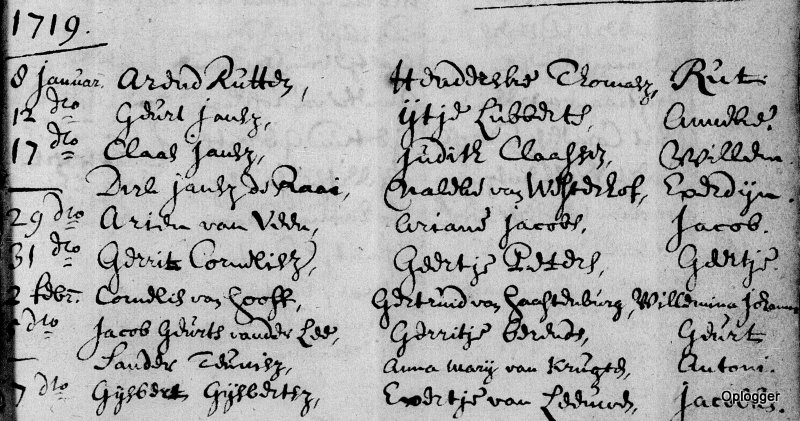 1719.
8 Januar. Arend Rutten, Henderske Thomasz, Rut.
12 dto Geurt Jansz, Ytje Lubberts, Anneke.
17 dto Claas Jansz, Judith Claassen, Willem.
— Dirk Jansz de Raai, van Westerhof, Everdyn.
29 dto Arien van Veen, Ariane Jacobs, Jacob.
31 dto Gerrit Cornelisz, Geertje Peters, Geertje.
2 febr. Cornelis van Hooff, Geertruid van Haastenburg, Willemina Johanna
dto Jacob Geurts vander Lee, Gerritje Berends, Geurt
— Sander Teunisz, Anna Mary van Krugten, Antoni.
7 dto Gijsbert Gijsbertsz, Evertje van Leeuwen, Jacobus.
Oplogger